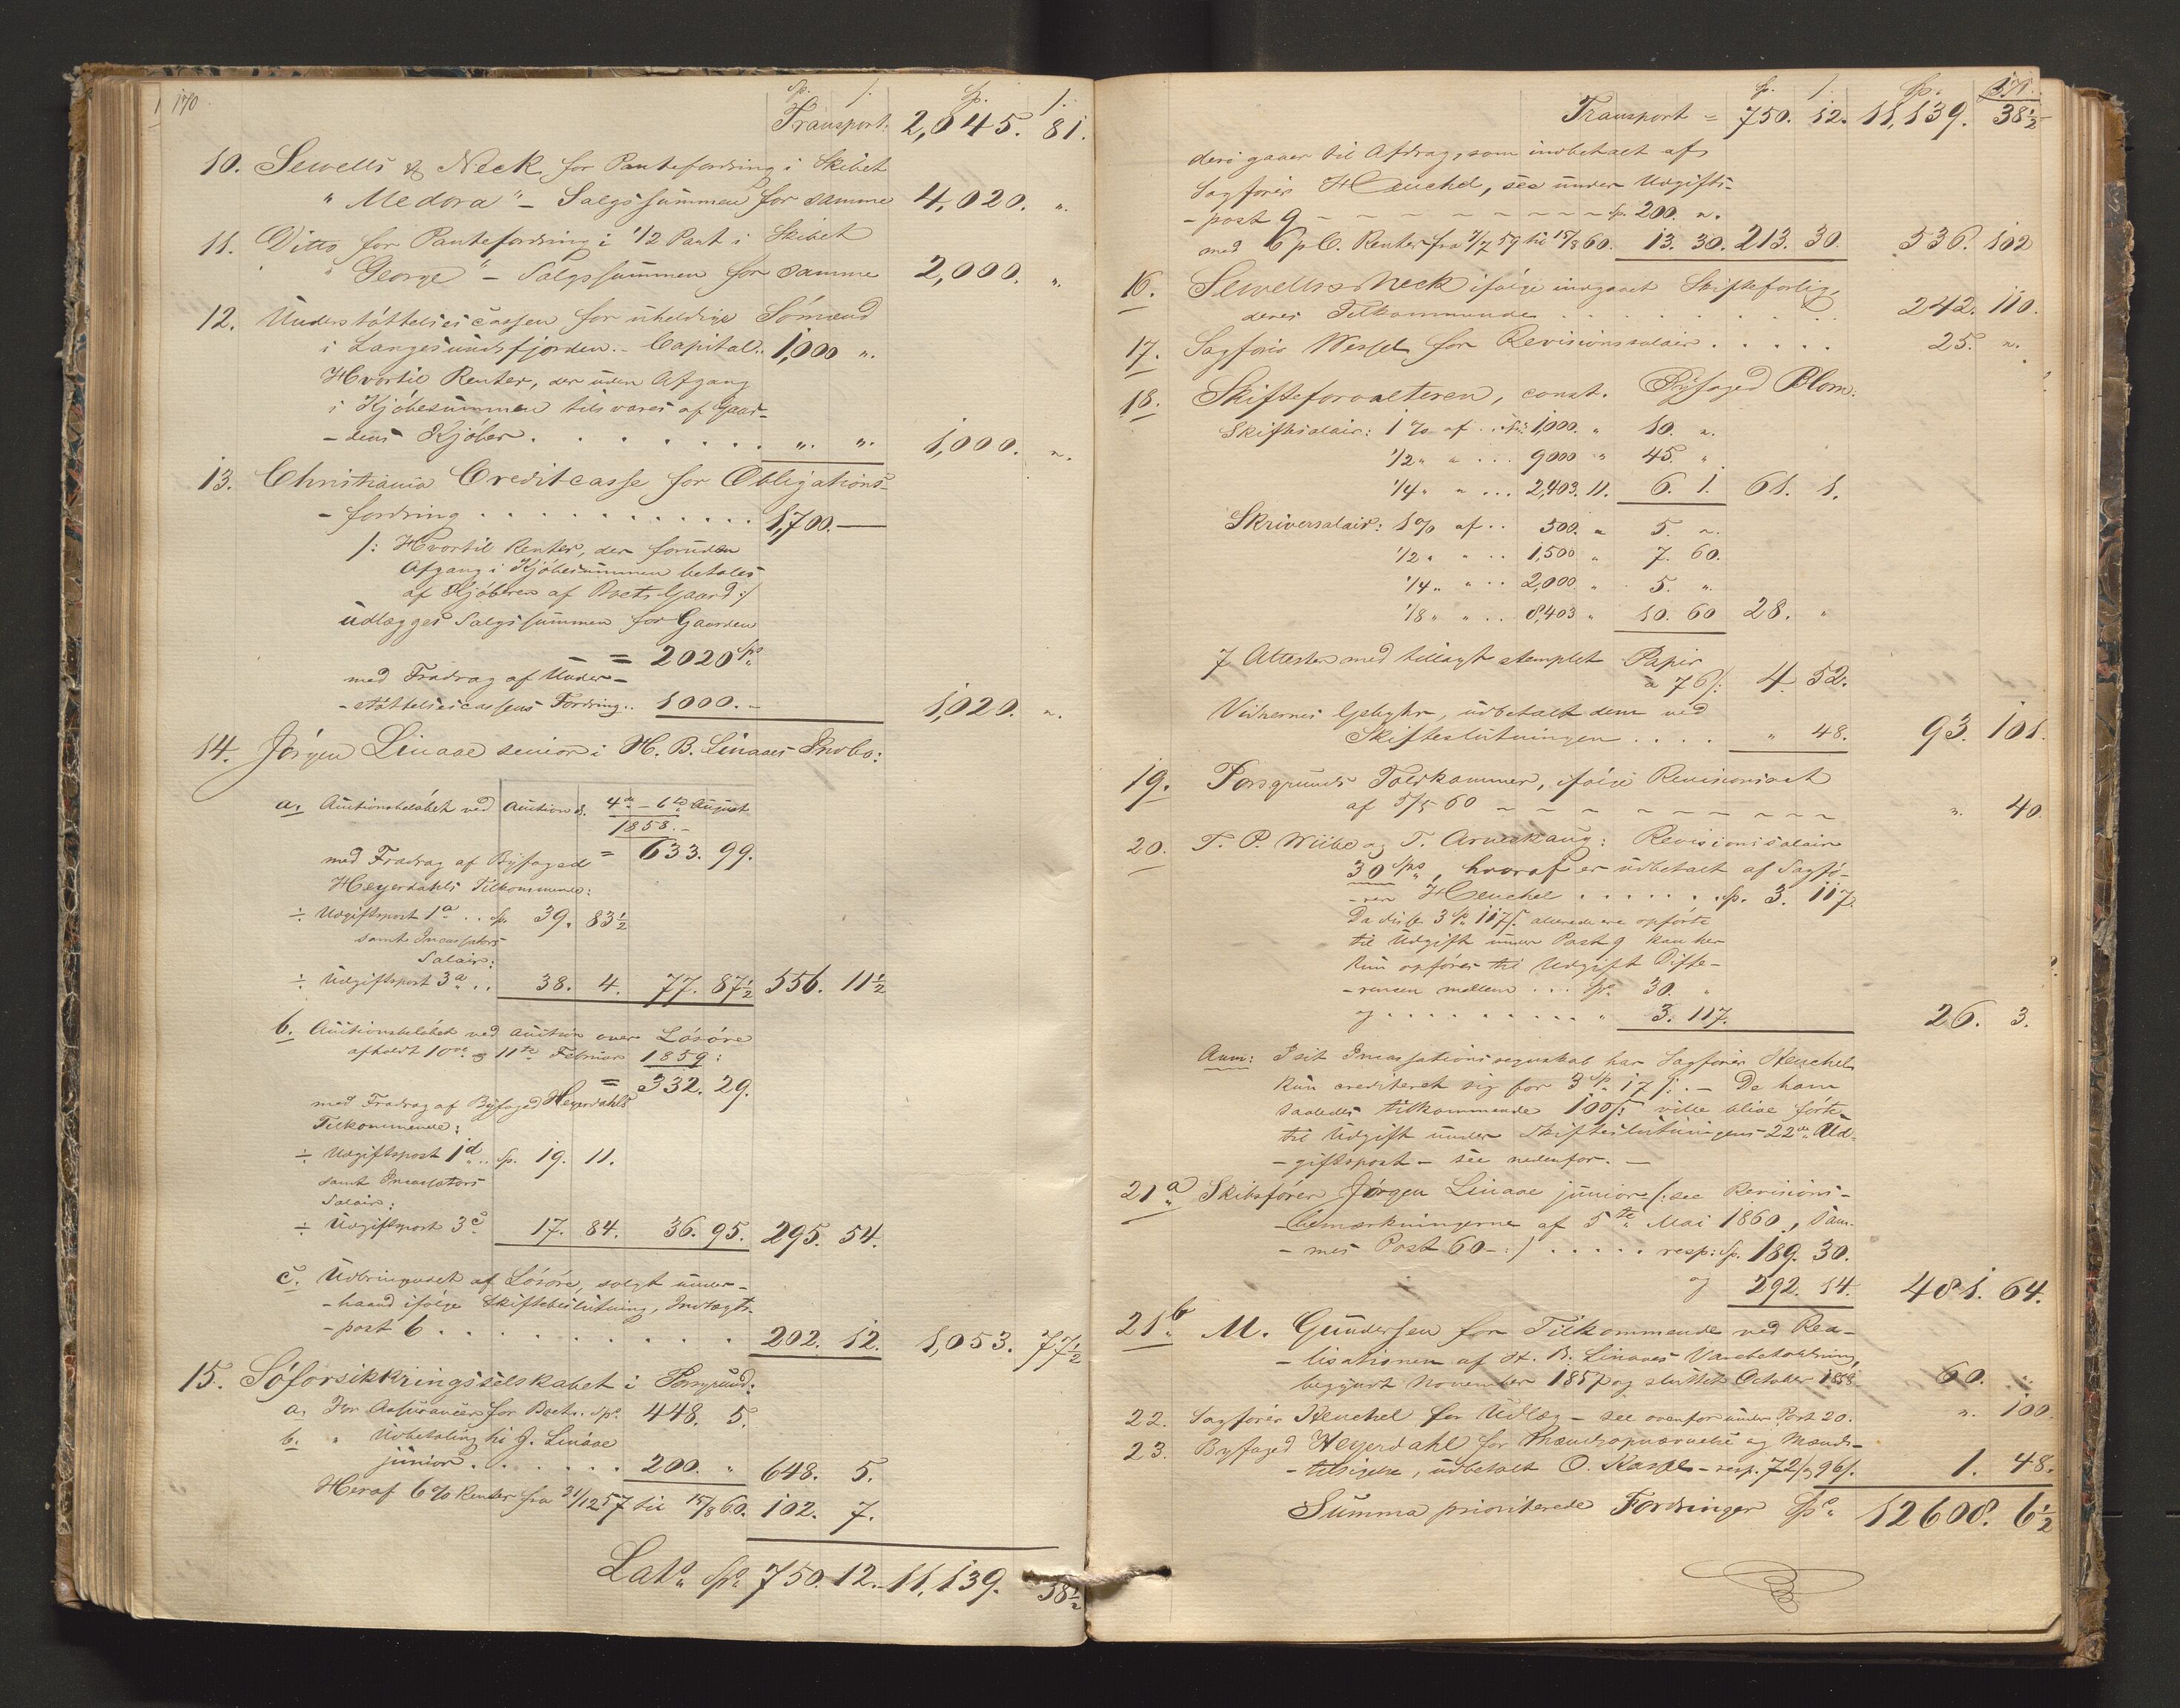 170
Sp. ʃ. Sp. ʃ.
Transport: 2,045. 81.
10. Sewells & Neck for Pantefordring i Skibet
"Medora" – Salgssummen for samme 4,020. ".
11. Ditto for Pantefordring i 1/2 Part i Skibet
"George" – Salgssummen for samme 2,000. ".
12. Understøttelsescassen for uheldige Sømænd
i Langesundsfjorden. – Capital.. 1,000 ".
Hvortil Renter, der uden Afgang
i Kjøbesummen tilsvares af Gaar-
-dens Kjøber . . . . . . . ". ". 1,000. ".
13. Christiania Creditcasse for Obligations-
-fordring . . . . . . . . . . . . 1,700. —
/: Hvortil Renter, der foruden
Afgang i Kjøbesummen betales
af Kjøberen af Boets Gaard :/
udlægges Salgssummen for Gaarden
= 2020 Sp.
med Fradrag af Under-
-støttelsescassens Fordring.. 1000. – 1,020. ".
14. Jørgen Linaae senior i H. B. Linaaes Indbo:
a. Auctionsbeløbet ved Auction d. 4de – 6te August
1858. –
= 633. 99.
med Fradrag af Byfoged
Heyerdahls Tilkommende:
÷ Udgiftspost 1a . . Sp. 39. 83½
samt Incassators
Salair:
÷ Udgiftspost 3a . . 38. 4. 77. 87½ 556. 11½
b. Auctionsbeløbet ved Auction over Løsøre
afholdt 10de og 11te Februar 1859:
= 332. 29.
med Fradrag af Byfoged Heyerdahls
Tilkommende:
÷ Udgiftspost 1d . . Sp. 19. 11.
samt Incassators
Salair:
÷ Udgiftspost 3c 17. 84. 36. 95. 295. 54.
c. Udbringendet af Løsøre, solgt under-
-haand ifølge Skiftebeslutning, Indtægts-
-post 6 . . . . . . . . . . . 202. 12. 1,053. 77½
15. Søforsikkringsselskabet i Porsgrund:
a. For Assurancer for Boet.. Sp. 448. 5.
b. " Udbetaling til J. Linaae
junior . . . . . . 200. " 648. 5.
Heraf 6 % Renter fra 31/12 57 til 15/8 60. 102. 7.
Lats. Sp. 750. 12. 11,139. 38½
171.
Sp. ʃ. Sp.
Transport = 750. 12. 11,139. 38½
deri gaaer til Afdrag, som indbetalt af
Sagfører Heuchel, see under Udgifts-
-post 9 – – – – – – – – – Sp. 200. ".
med 6 p. C. Renter fra 7/7 59 til 15/8 60. 13. 30. 213. 30. 536. 102
16. Sewells & Neck ifølge indgaaet Skifteforlig,
deres Tilkommende . . . . . . . . . 242. 110.
17. Sagfører Wessel for Revisionssalair . . . . . 25. ".
18. Skifteforvalteren, const. Byfoged Blom:
Skiftesalair: 1 % af .. Sp. 1,000. " 10. ".
1/2 " " . . . 9000 " 45. "
1/4 " " . . . 2,403. 11. 6. 1. 61. 1.
Skriversalair: 1 % af . . 500. " 5. ".
1/2 " " . . 1,500 " 7. 60.
1/4 " " . . 2,000. " 5. ".
1/8 " " . . 8,403 " 10. 60 28. "
7 Attester med tillagt stemplet Papir
a 76 ʃ: 4. 52.
Vidnernes Gebyhr, udbetalt dem ved
Skifteslutningen . . . . " 48. 93. 101.
19. Porsgrunds Toldkammer, ifølge Revisionsact
af 5/5 60 – – – – – – – – – ". 40.
20. T. P. Wiibe og T. Arneskaug: Revisionssalair
30 Sp., hvoraf er udbetalt af Sagfø-
-rer Heuchel . . . . . . Sp. 3. 117.
Da disse 3 Sp. 117 ʃ. allerede ere opførte
til Udgift under Post 9 kan her
kun opføres til Udgift Diffe-
-rencen mellem . . . Sp. 30. "
og . . . . . . . . . " 3. 117. 26. 3.
Anm: I sit Incassationsregnskab har Sagfører Heuchel
kun crediteret sig for 3 Sp. 17 ʃ: – De ham
saaledes tilkommende 100 ʃ: ville blive førte
til Udgift under Skifteslutningens 22de Ud-
-giftspost – see nedenfor. –
21a. Skibsfører Jørgen Linaae junior /: see Revisions-
-bemærkningerne af 5te Mai 1860, sam-
-mes Post 60 – :/ . . . . . resp: Sp. 189. 30.
og 292. 14. 481. 64.
21b. M. Gundersen for Tilkommende ved Rea-
-lisationen af H. B. Linaaes Varebeholdning,
begyndt November 1857 og sluttet October 1858 60. "
22. Sagfører Heuchel for Udlæg – see ovenfor under Post 20. ". 100
23. Byfoged Heyerdahl for Mændsopnævnelse og Mænds-
-tilsigelse, udbetalt O. Kasse – resp. 72 ʃ og 96 ʃ. 1. 48.
Summa prioriterede Fordringer Sp. 12608. 6½